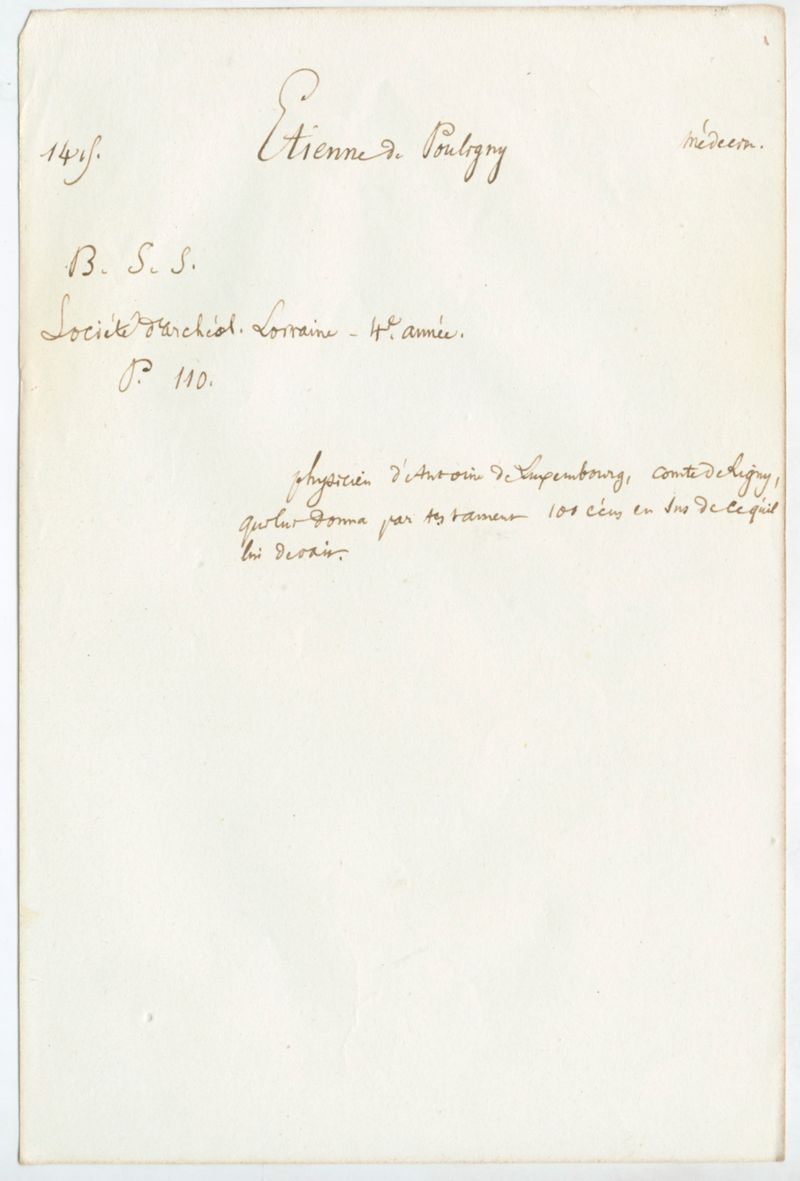 1415. Etienne de Pouligny médecin.
B. S. S.
Société d'archéol. Lorraine - 4e. année.
P. 110.
physicien d'Antoine de Luxembourg, comte de Ligny,
qui lui donna par testament 100 écus en sus de ce qu'il
lui devait.